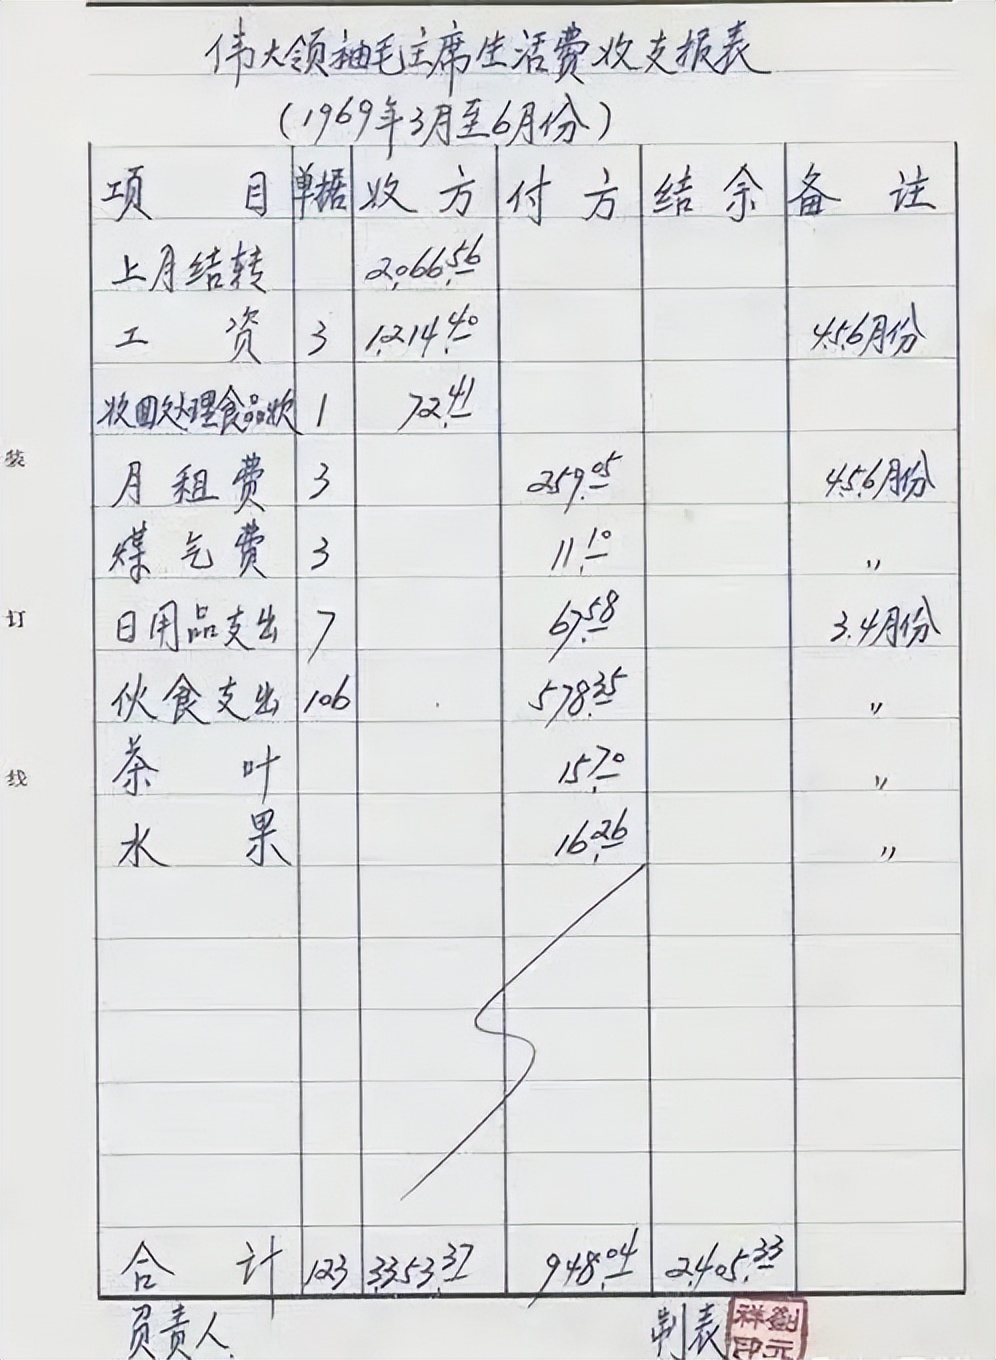 伟大领袖毛主席生活费收支报表
(1969年3月至6月份)
项目 单据 收方 付方 结余 备注
上月结转 2,066.56
工资 3 1,214.40 4.5.6月份
收回处理食品款 1 72.41
月租费 3 259.05 4.5.6月份
煤气费 3 11.10 〃
日用品支出 7 67.58 3.4月份
伙食支出 106 578.35 〃
茶叶 15.70 〃
水果 16.26 〃
合计 123 3,353.37 948.04 2,405.33
负责人 制表 劉元祥印
装
订
线